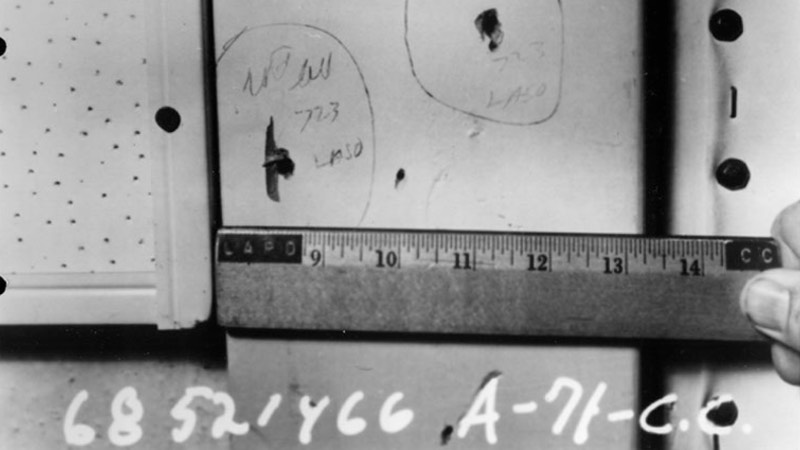 723
LASO
723
LASO
LAPD 9 10 11 12 13 14 CC
68 521466 A-71-C.C.